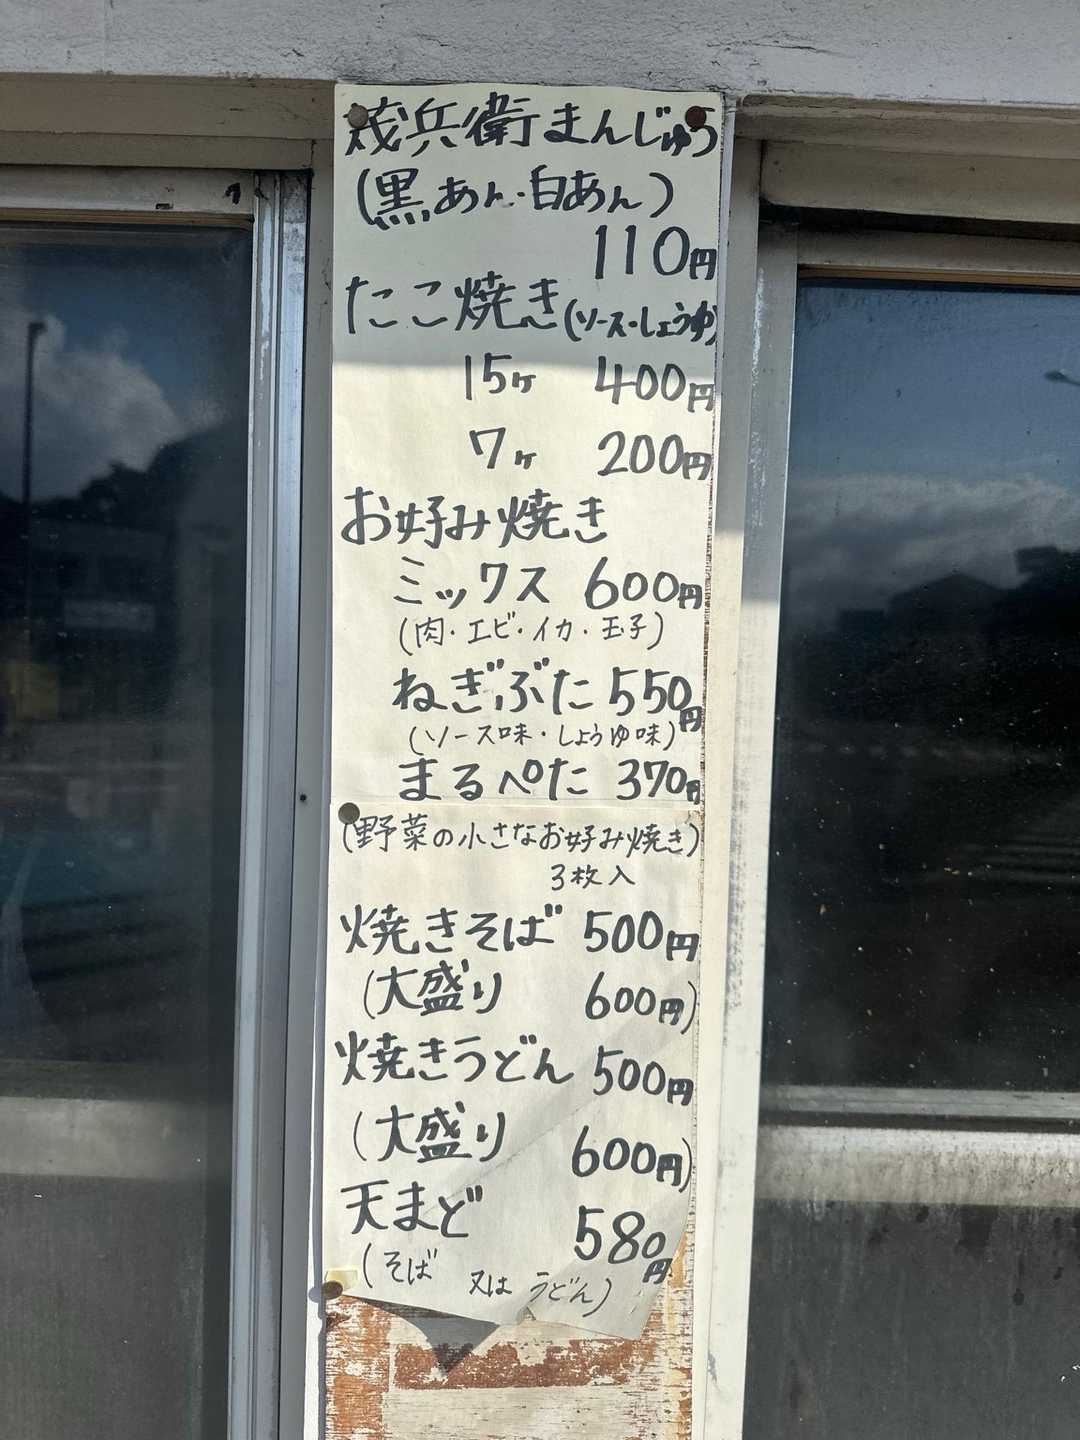 茂兵衛まんじゅう
(黒あん・白あん)
110円
たこ焼き(ソース・しょうゆ)
15ヶ 400円
7ヶ 200円
お好み焼き
ミックス 600円
(肉・エビ・イカ・玉子)
ねぎぶた 550円
(ソース味・しょうゆ味)
まるぺた 370円
(野菜の小さなお好み焼き)
3枚入
焼きそば 500円
(大盛り 600円)
焼きうどん 500円
(大盛り 600円)
天まど 580円
(そば 又は うどん)